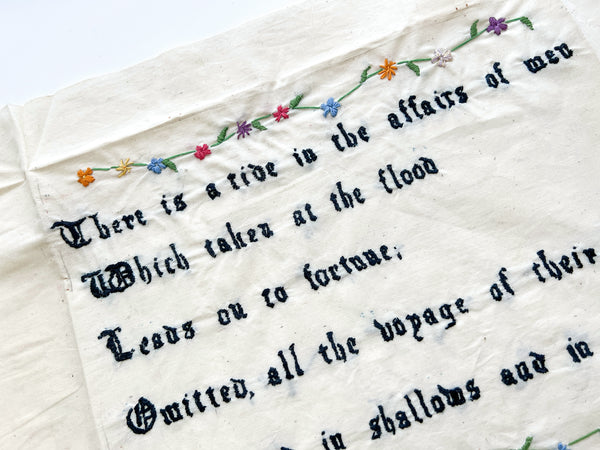 There is a tide in the affairs of men
Which taken at the flood
Leads on to fortune;
Omitted, all the voyage of their
in shallows and in